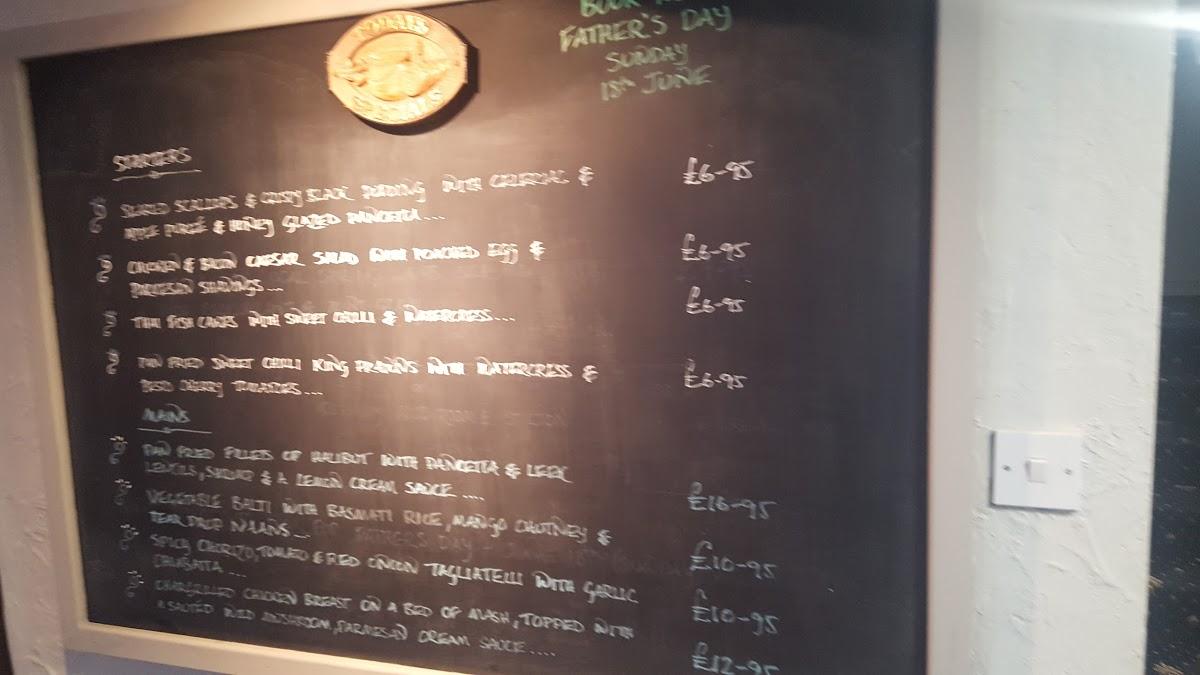 BOOK
FATHER'S DAY
SUNDAY
18th JUNE
TODAY'S
SPECIALS
STARTERS
SEARED SCALLOPS & CRISPY BLACK PUDDING WITH CELERIAC &
APPLE PUREÉ & HONEY GLAZED PANCETTA.... £6-95
CHICKEN & BACON CAESAR SALAD WITH POACHED EGG &
PARMESAN SHAVINGS... £6-95
THAI FISH CAKES WITH SWEET CHILLI & WATERCRESS.... £6-95
PAN FRIED SWEET CHILLI KING PRAWNS WITH WATERCRESS &
PESTO CHERRY TOMATOES.... £6-95
MAINS
PAN FRIED FILLETS OF HALIBUT WITH PANCETTA & LEEK
LENTILS, SHRIMP & A LEMON CREAM SAUCE .... £16-95
VEGETABLE BALTI WITH BASMATI RICE, MANGO CHUTNEY &
TEAR DROP NAANS... £10-95
SPICY CHORIZO, TOMATO & RED ONION TAGLIATELLI WITH GARLIC
CIABATTA .... £10-95
CHARGRILLED CHICKEN BREAST ON A BED OF MASH, TOPPED WITH
A SAUTÉED WILD MUSHROOM, PARMESAN CREAM SAUCE.... £12-95